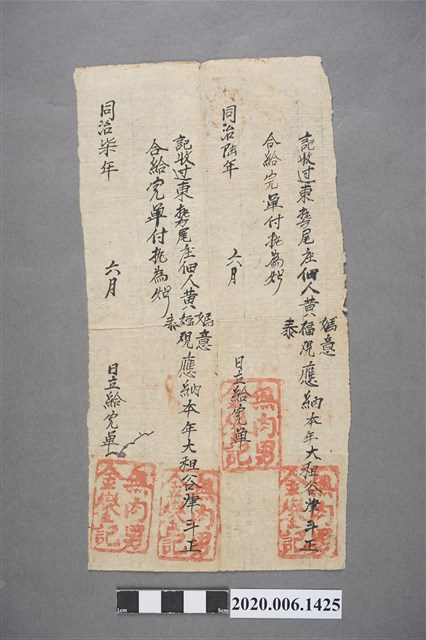 記收过東勢尾庄佃人黃
媽意
福観
泰
應納本年大租谷斗正
合給完單付執為炤
同治陸年 六月 日立給完單
無肉男
金記
記收过東勢尾庄佃人黃
媽意
福観
泰
應納本年大租谷斗正
合給完單付執為炤
同治柒年 六月 日立給完單
無肉男
金記
無肉男
金記
1cm 5cm
2020.006.1425